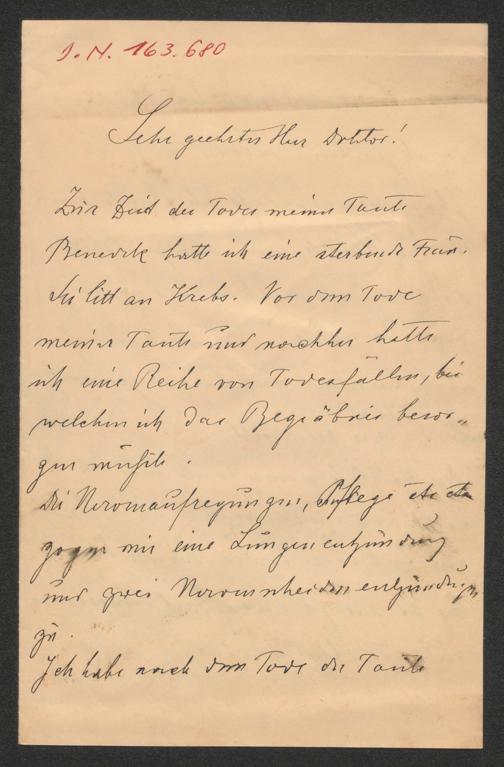 J. N. 163.680
Sehr geehrter Herr Doktor!
Zur Zeit des Todes meiner Tante
Benedek hatte ich eine sterbende Frau.
Sie litt an Krebs. Vor dem Tode
meiner Tante und nachher hatte
ich eine Reihe von Todesfällen, bei
welchen ich das Begräbnis besor„
gen mußte.
Die Nervenaufregungen, Pflege etc etc
zogen mir eine Lungenentzündung
und zwei Nervenscheidenentzündungen
zu.
Ich habe nach dem Tode der Tante